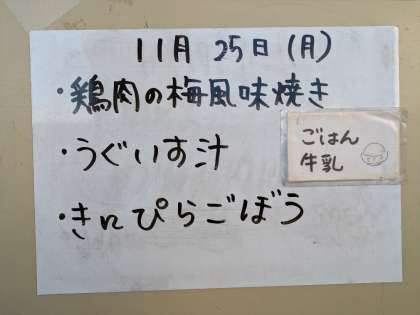 11月 25日(月)
・鶏肉の梅風味焼き
・うぐいす汁
・きんぴらごぼう
ごはん
牛乳